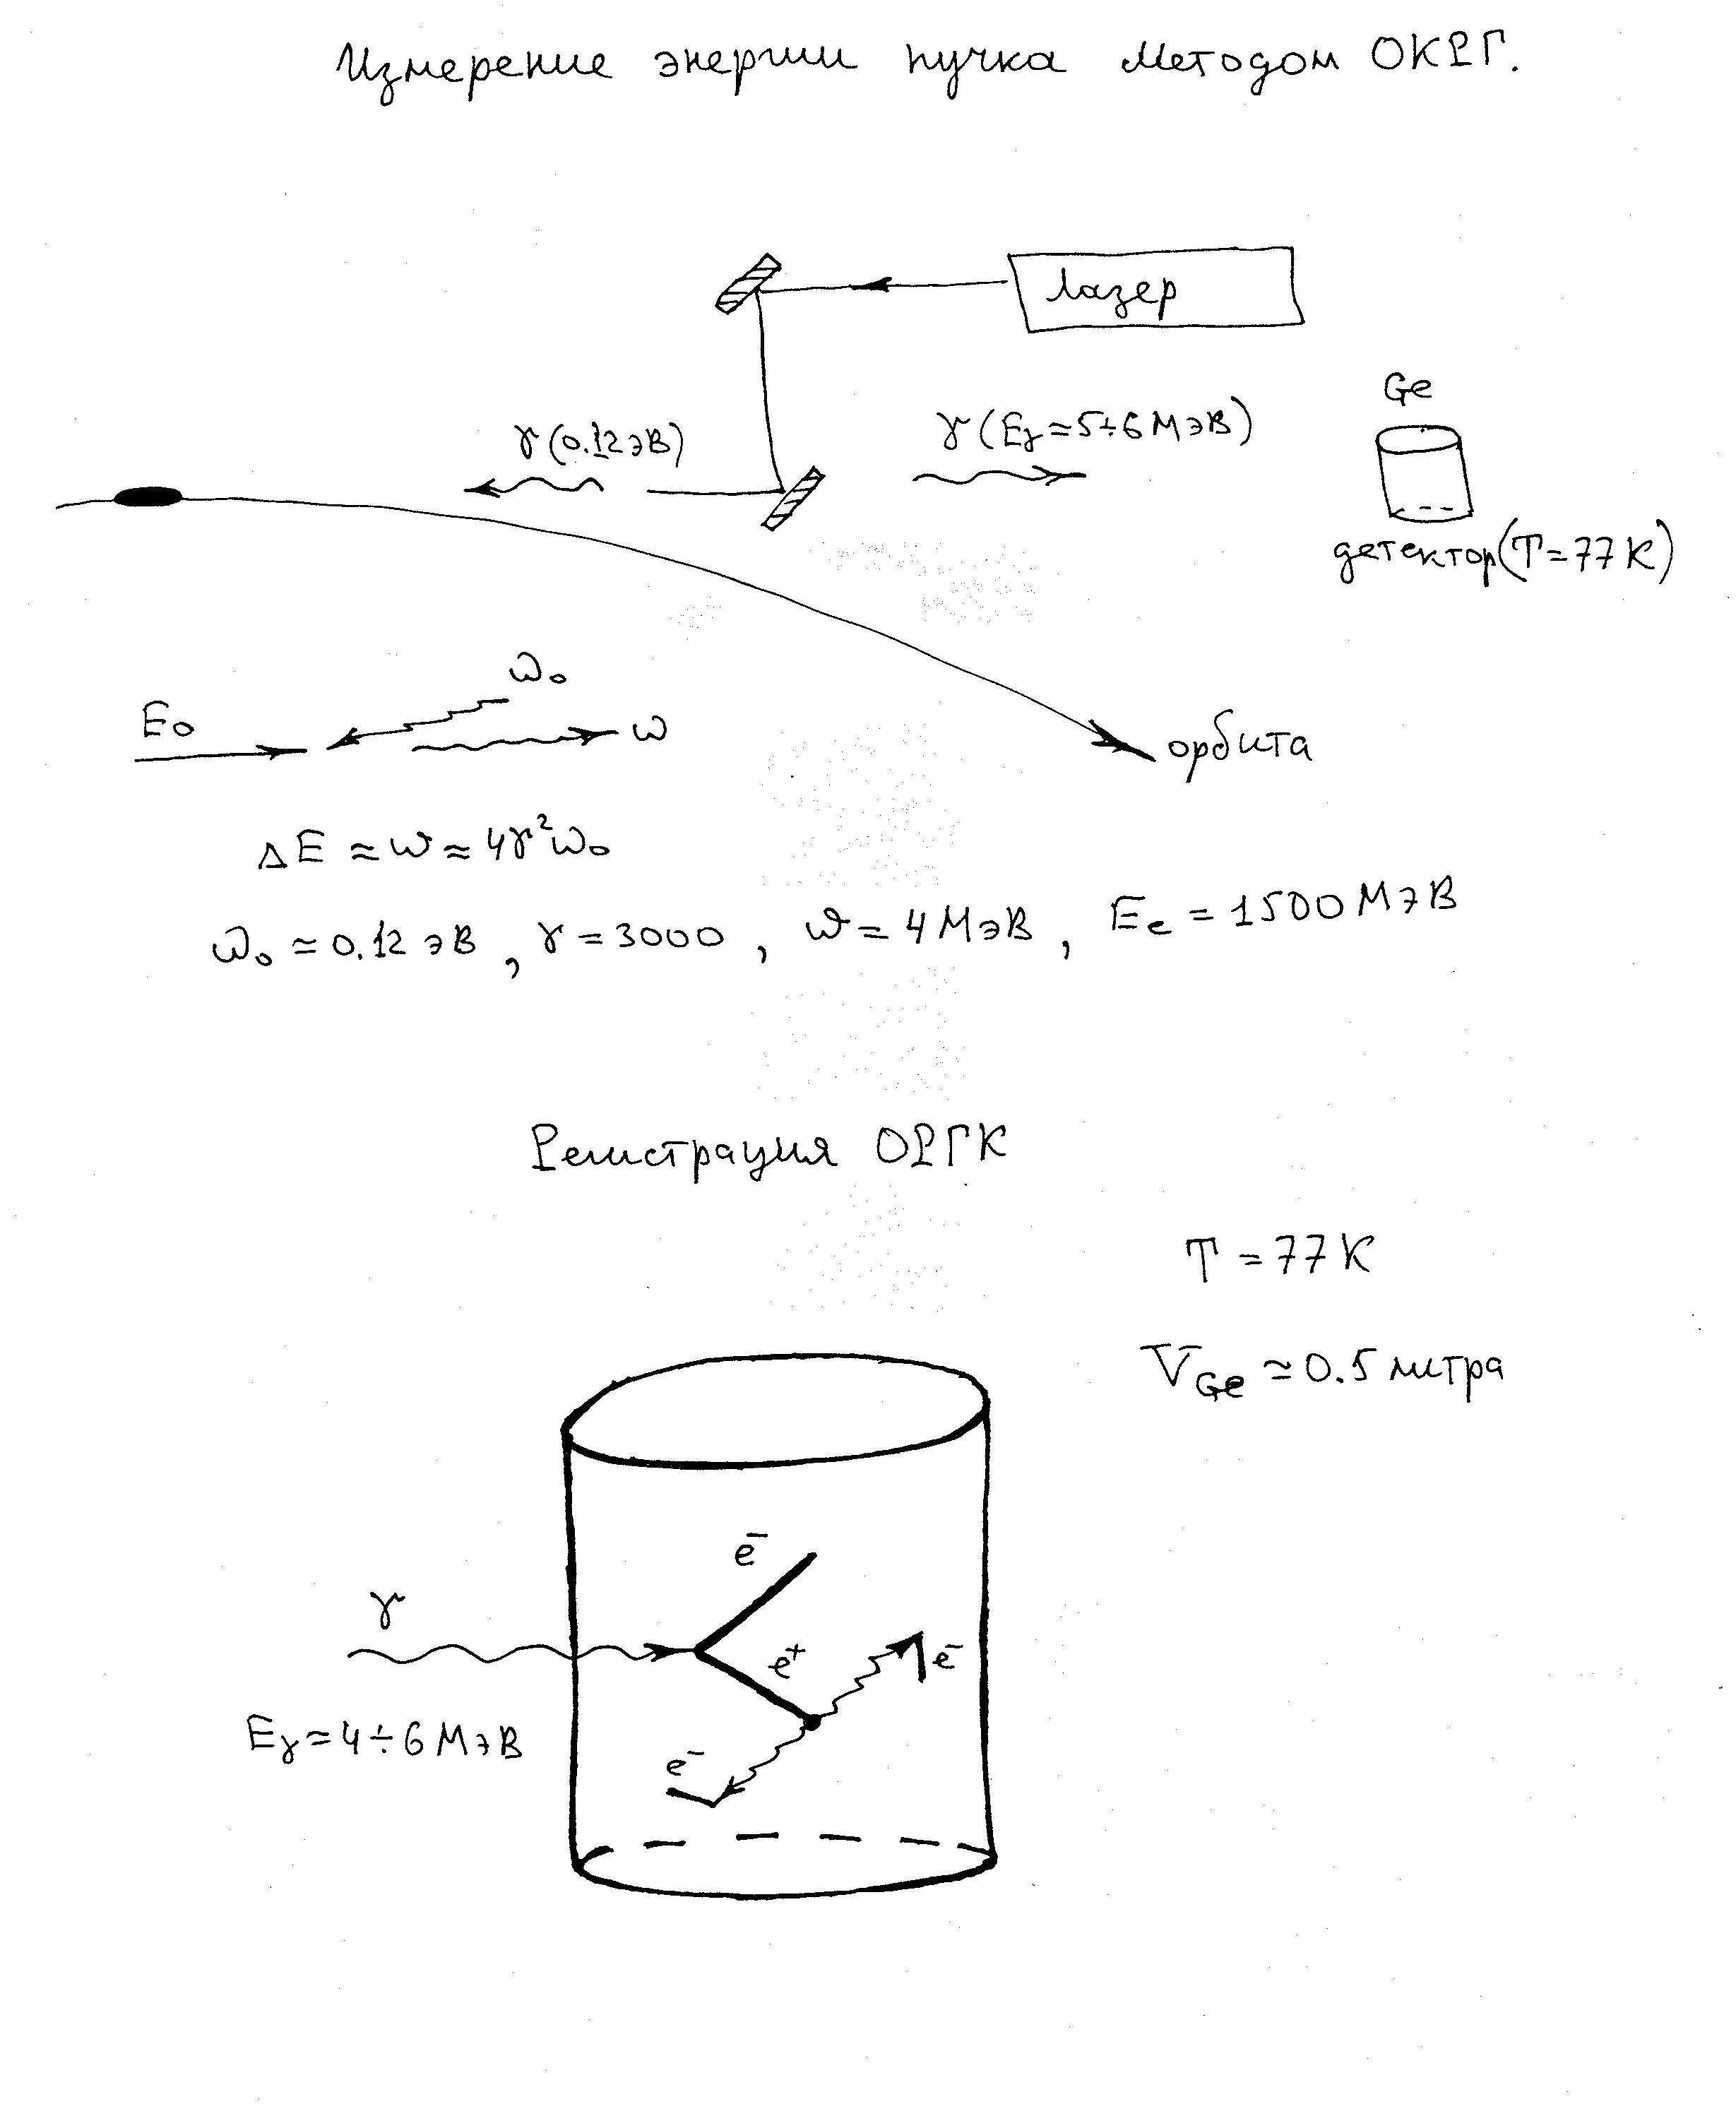 Измерение энергии пучка методом ОКРГ.
лазер
Ge
γ(0.12эВ)
γ(Eγ≃5÷6МэВ)
детектор(T=77K)
ω₀
E₀
ω
орбита
ΔE ≈ ω ≈ 4γ²ω₀
ω₀ ≃ 0.12 эВ, γ = 3000, ω = 4 МэВ, Ee = 1500 МэВ
Регистрация ОРГК
T = 77K
V_Ge ≃ 0.5 литра
e⁻
γ
e⁺
e⁻
Eγ ≃ 4÷6 МэВ
e⁻